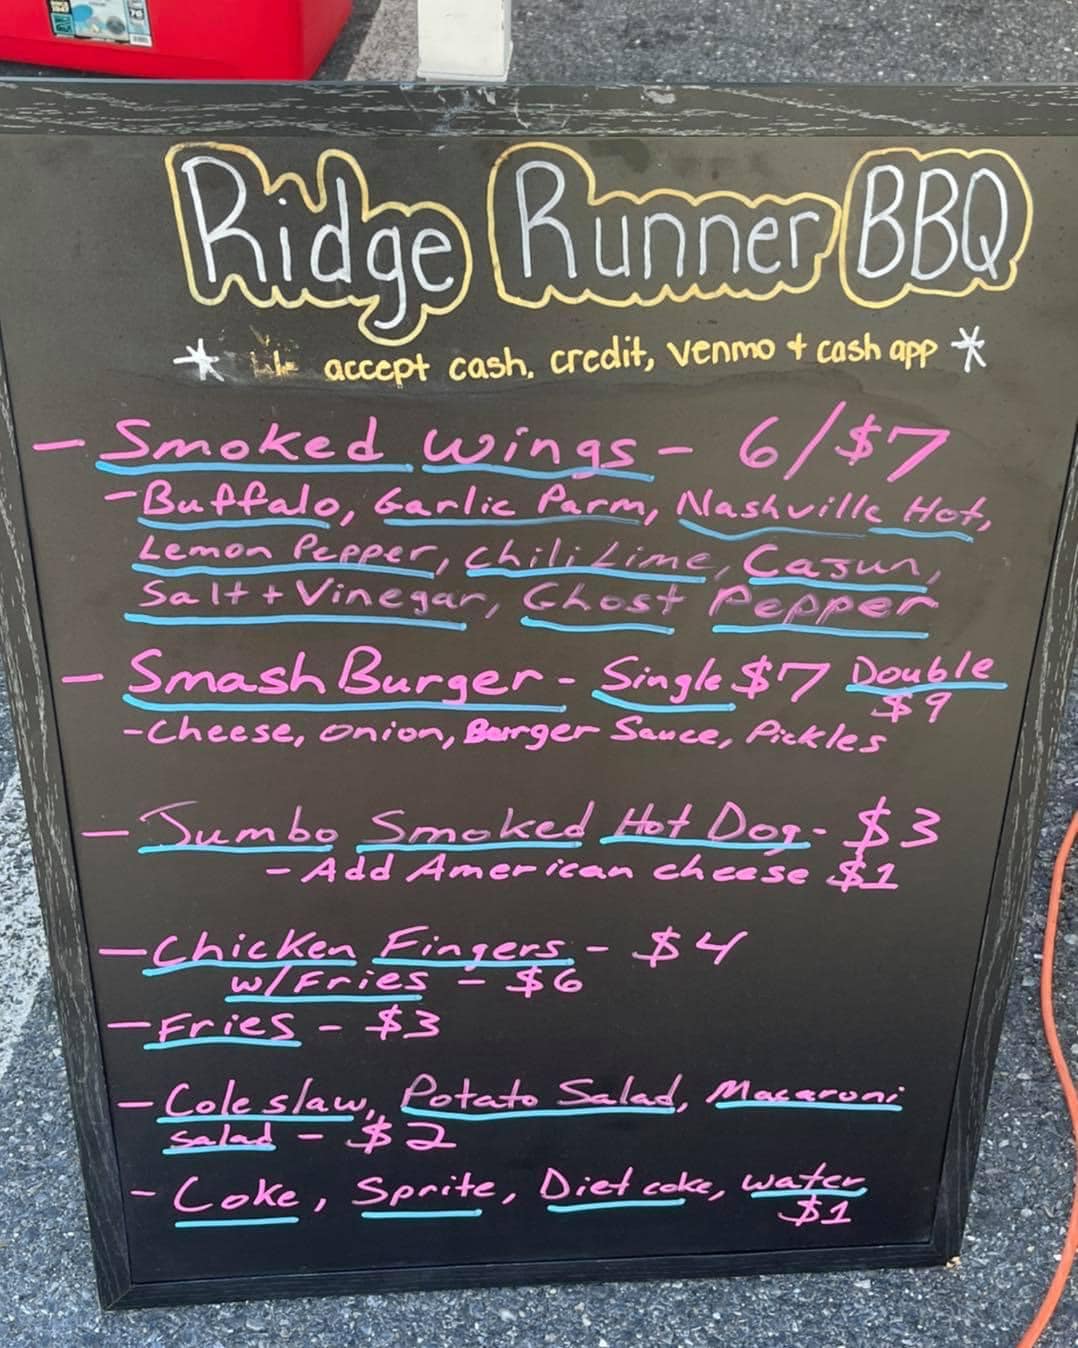 Ridge Runner BBQ
* We accept cash, credit, venmo + cash app *
- Smoked Wings - 6/$7
- Buffalo, Garlic Parm, Nashville Hot,
Lemon Pepper, Chili Lime, Cajun,
Salt + Vinegar, Ghost Pepper
- Smash Burger - Single $7 Double
$9
- Cheese, onion, Burger Sauce, Pickles
- Jumbo Smoked Hot Dog - $3
- Add American cheese $1
- Chicken Fingers - $4
w/Fries - $6
- Fries - $3
- Coleslaw, Potato Salad, Macaroni
salad - $2
- Coke, Sprite, Diet coke, water
$1